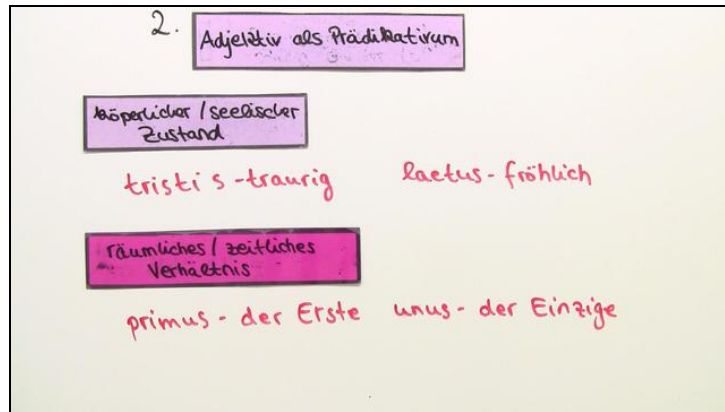 2.
Adjektiv als Prädikativum
köperlicher / seelischer
Zustand
tristis - traurig laetus - fröhlich
räumliches / zeitliches
Verhältnis
primus - der Erste unus - der Einzige